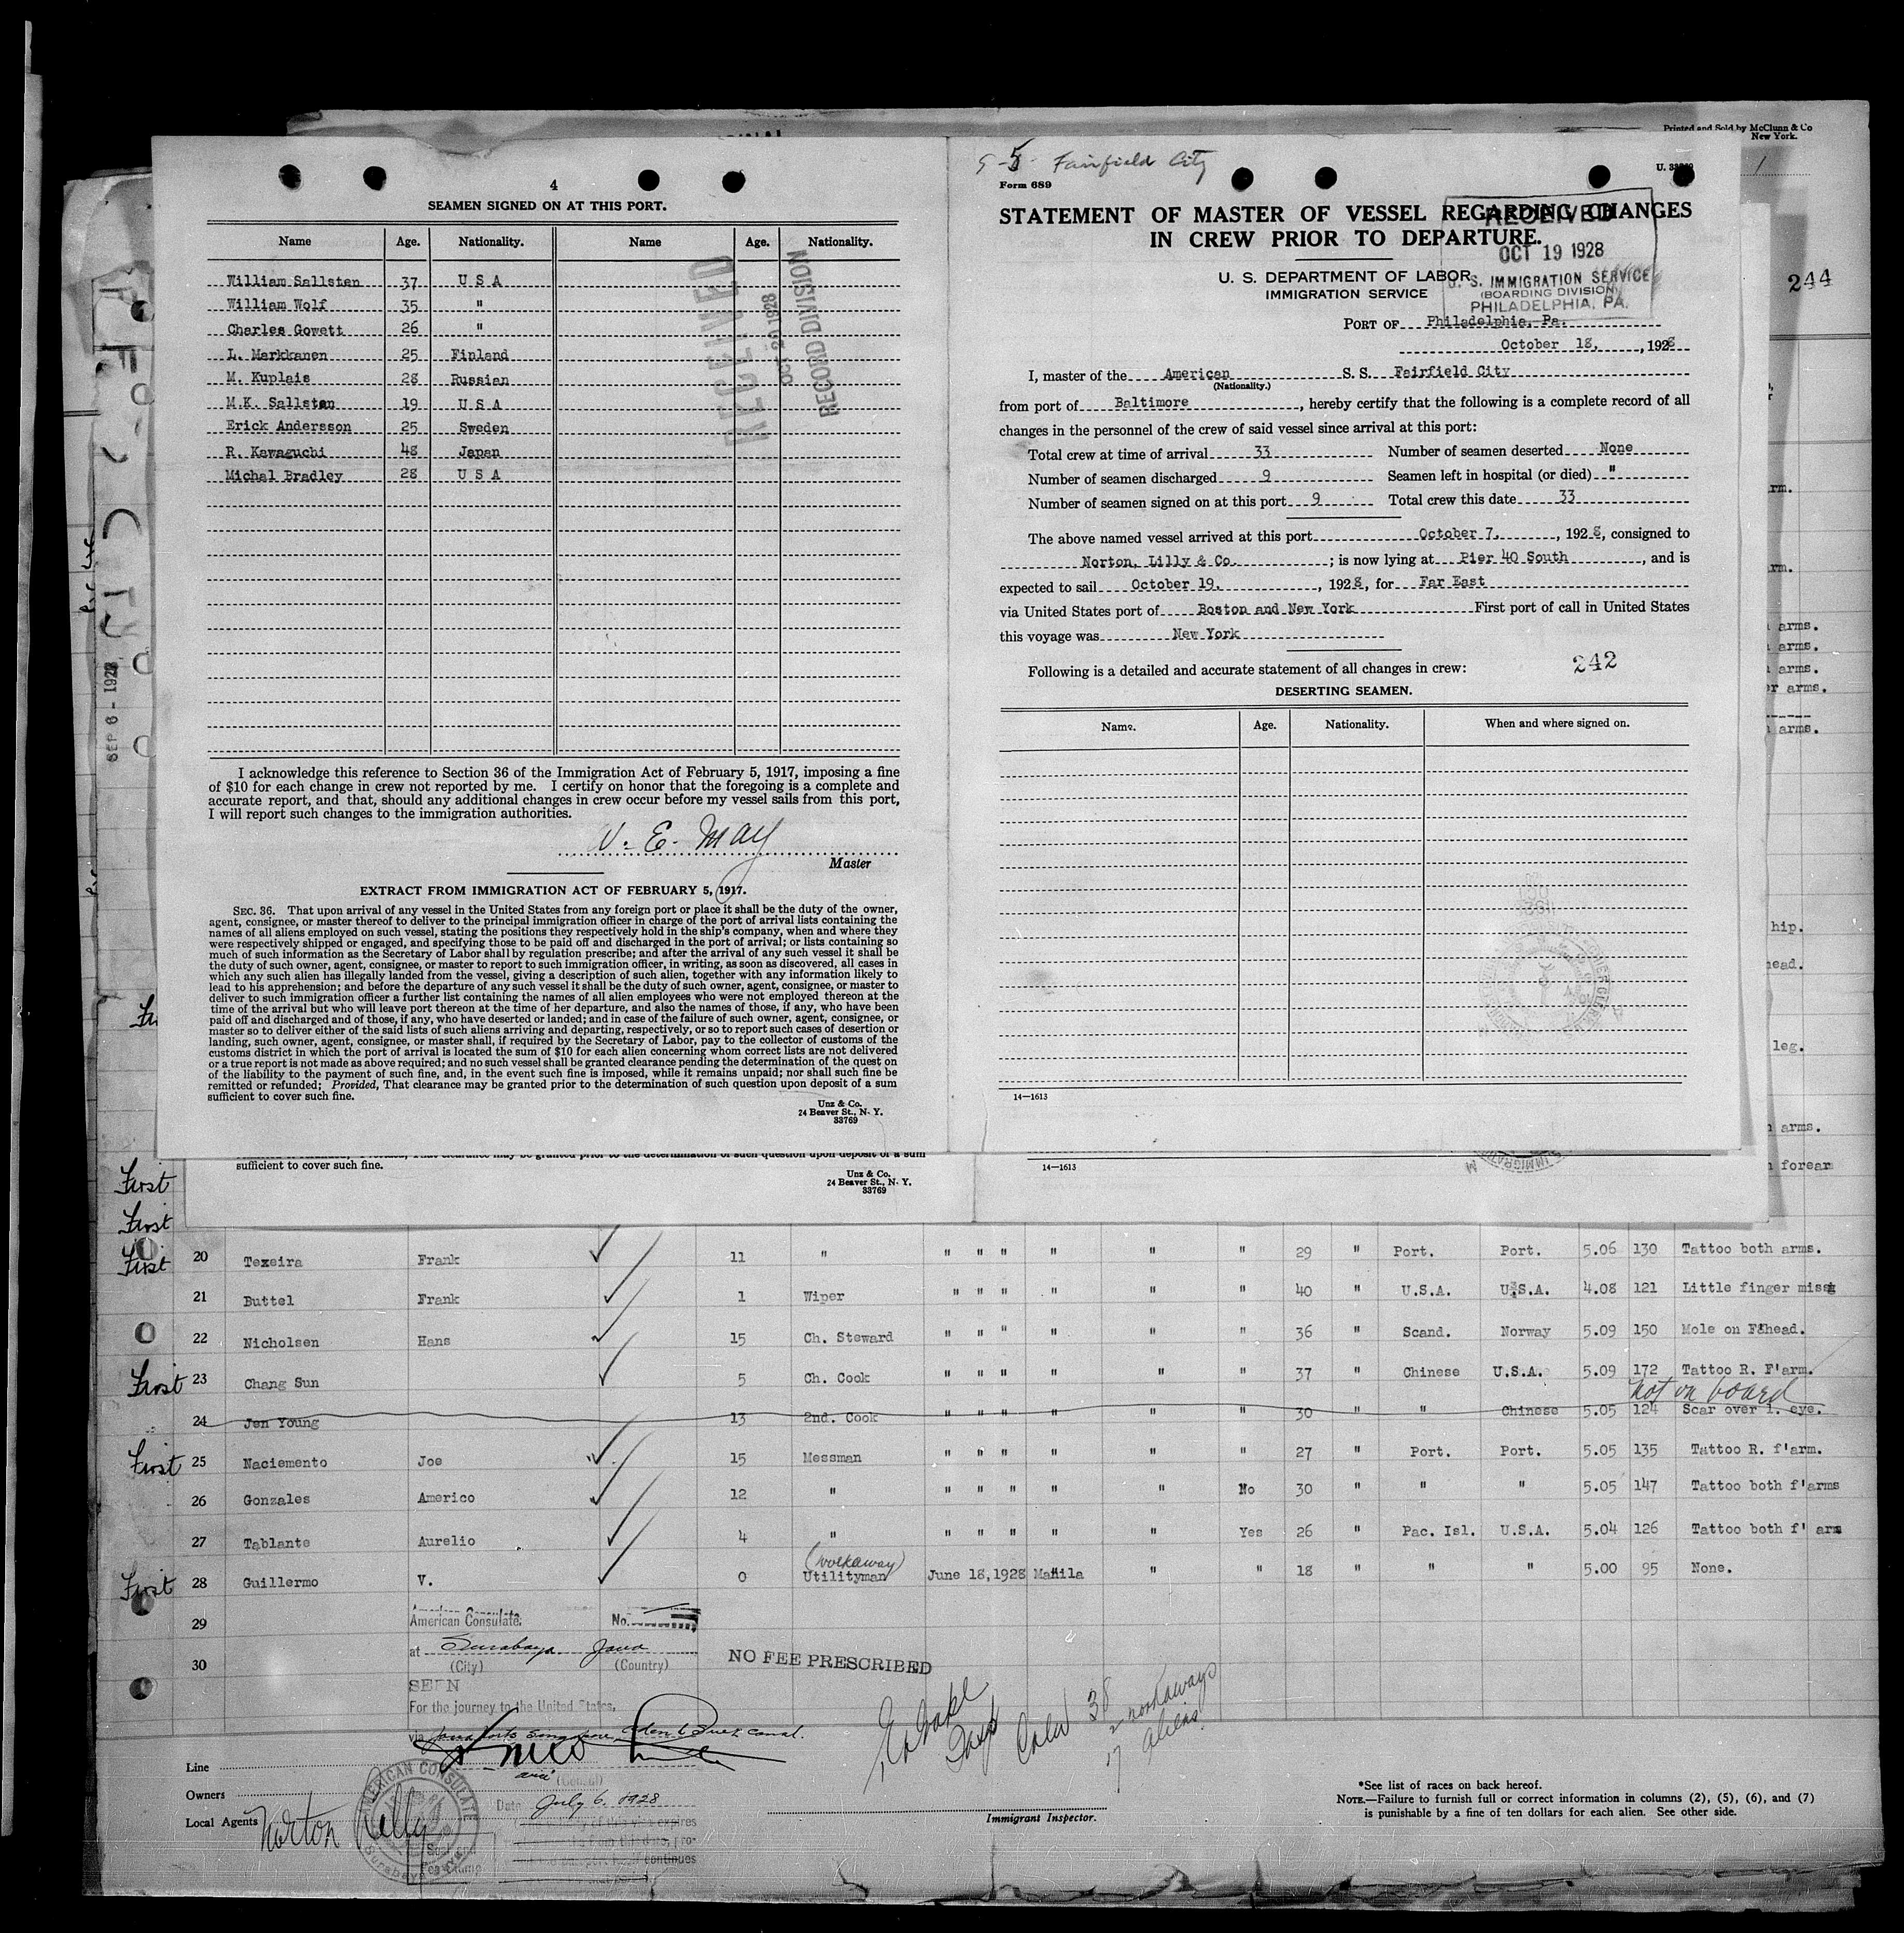 Printed and Sold by McClunn & Co
New York.
4
SEAMEN SIGNED ON AT THIS PORT.
Name Age. Nationality. Name Age. Nationality.
William Sallsten 37 U S A
William Wolf 35 "
Charles Gowett 26 "
L. Markkanen 25 Finland
M. Kuplais 28 Russian
M.K. Sallsten 19 U S A
Erick Andersson 25 Sweden
R. Kawaguchi 48 Japan
Michal Bradley 28 U S A
RECEIVED
OCT 20 1928
RECORD DIVISION
I acknowledge this reference to Section 36 of the Immigration Act of February 5, 1917, imposing a fine
of $10 for each change in crew not reported by me. I certify on honor that the foregoing is a complete and
accurate report, and that, should any additional changes in crew occur before my vessel sails from this port,
I will report such changes to the immigration authorities.
V. E. May
Master
EXTRACT FROM IMMIGRATION ACT OF FEBRUARY 5, 1917.
SEC. 36. That upon arrival of any vessel in the United States from any foreign port or place it shall be the duty of the owner,
agent, consignee, or master thereof to deliver to the principal immigration officer in charge of the port of arrival lists containing the
names of all aliens employed on such vessel, stating the positions they respectively hold in the ship's company, when and where they
were respectively shipped or engaged, and specifying those to be paid off and discharged in the port of arrival; or lists containing so
much of such information as the Secretary of Labor shall by regulation prescribe; and after the arrival of any such vessel it shall be
the duty of such owner, agent, consignee, or master to report to such immigration officer, in writing, as soon as discovered, all cases in
which any such alien has illegally landed from the vessel, giving a description of such alien, together with any information likely to
lead to his apprehension; and before the departure of any such vessel it shall be the duty of such owner, agent, consignee, or master to
deliver to such immigration officer a further list containing the names of all alien employees who were not employed thereon at the
time of the arrival but who will leave port thereon at the time of her departure, and also the names of those, if any, who have been
paid off and discharged and of those, if any, who have deserted or landed; and in case of the failure of such owner, agent, consignee, or
master so to deliver either of the said lists of such aliens arriving and departing, respectively, or so to report such cases of desertion or
landing, such owner, agent, consignee, or master shall, if required by the Secretary of Labor, pay to the collector of customs of the
customs district in which the port of arrival is located the sum of $10 for each alien concerning whom correct lists are not delivered
or a true report is not made as above required; and no such vessel shall be granted clearance pending the determination of the quest on
of the liability to the payment of such fine, and, in the event such fine is imposed, while it remains unpaid; nor shall such fine be
remitted or refunded; Provided, That clearance may be granted prior to the determination of such question upon deposit of a sum
sufficient to cover such fine.
Unz & Co.
24 Beaver St., N. Y.
33769
Fairfield City
Form 689
STATEMENT OF MASTER OF VESSEL REGARDING CHANGES
IN CREW PRIOR TO DEPARTURE.
RECEIVED
OCT 19 1928
U. S. IMMIGRATION SERVICE
(BOARDING DIVISION)
PHILADELPHIA, PA.
U. S. DEPARTMENT OF LABOR
IMMIGRATION SERVICE
PORT OF Philadelphia, Pa.
October 18, , 1928
I, master of the American S. S. Fairfield City
(Nationality.)
from port of Baltimore , hereby certify that the following is a complete record of all
changes in the personnel of the crew of said vessel since arrival at this port:
Total crew at time of arrival 33 Number of seamen deserted None
Number of seamen discharged 9 Seamen left in hospital (or died) "
Number of seamen signed on at this port 9 Total crew this date 33
The above named vessel arrived at this port October 7, , 1928, consigned to
Norton, Lilly & Co. ; is now lying at Pier 40 South , and is
expected to sail October 19, , 1928, for Far East
via United States port of Boston and New York First port of call in United States
this voyage was New York
Following is a detailed and accurate statement of all changes in crew: 242
DESERTING SEAMEN.
Name. Age. Nationality. When and where signed on.
14—1613
244
SEP 6 - 1928
arms.
arms.
arms.
arms.
arms.
hip.
leg.
arms.
sufficient to cover such fine.
Unz & Co.
24 Beaver St., N. Y.
33769
14—1613
First
First
First 20 Texeira Frank 11 " " " " " " " 29 " Port. Port. 5.06 130 Tattoo both arms.
21 Buttel Frank 1 Wiper " " " " " " 40 " U.S.A. U.S.A. 4.08 121 Little finger missg
22 Nicholsen Hans 15 Ch. Steward " " " " " " 36 " Scand. Norway 5.09 150 Mole on F'head.
First 23 Chang Sun 5 Ch. Cook " " " " " " 37 " Chinese U.S.A. 5.09 172 Tattoo R. F'arm.
not on board
24 Jen Young 13 2nd. Cook " " " " " " 30 " " Chinese 5.05 124 Scar over l. eye.
First 25 Naciemento Joe 15 Messman " " " " " " 27 " Port. Port. 5.05 135 Tattoo R. f'arm.
26 Gonzales Americo 12 " " " " " " No 30 " " " 5.05 147 Tattoo both f'arms
27 Tablante Aurelio 4 " " " " " " Yes 26 " Pac. Isl. U.S.A. 5.04 126 Tattoo both f' arm
(workaway)
First 28 Guillermo V. 0 Utilityman June 18,1928 Manila " " 18 " " " 5.00 95 None.
29
30
American Consulate.
No.
at Surabaya Java
(City) (Country)
SEEN
For the journey to the United States,
via Java Ports Singapore, Aden & Suez Canal.
NO FEE PRESCRIBED
Date July 6. 1928
AMERICAN CONSULATE
Crew 38
2 workaways
17 aliens
Line
Owners
Local Agents Norton Lilly
Immigrant Inspector.
*See list of races on back hereof.
NOTE.—Failure to furnish full or correct information in columns (2), (5), (6), and (7)
is punishable by a fine of ten dollars for each alien. See other side.